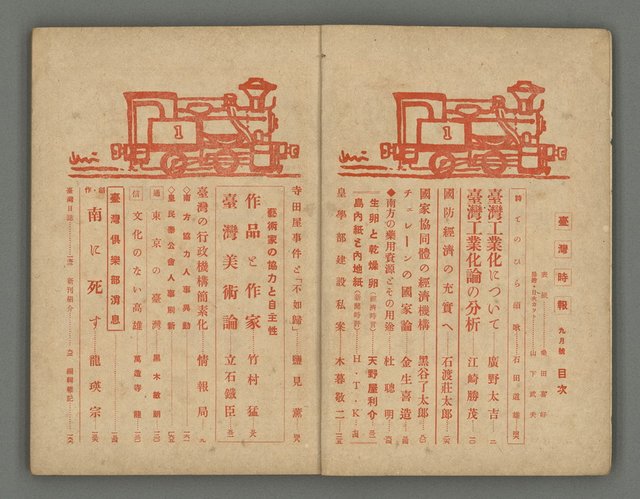 臺灣時報 九月號 目次
表紙 桑田喜好
山下武夫
勝てのひら頌歌 石田道雄
臺灣工業化について 廣野太吉
臺灣工業化論の分析 江崎勝茂
國防經濟の充實へ 石渡莊太郎
國家協同體の經濟機構 黑谷了太郎
チエレーンの國家論 金生喜造
◆南方の藥用資源とその用途 杜聰明
生卵と乾燥卵（經濟時言） 天野屋利介
島内紙と内地紙（新聞時評） H・T・K
皇學部建設私案 木暮敬二
1
寺田屋事件と「不如歸」 鹽見薰
藝術家の協力と自主性
作品と作家 竹村猛
臺灣美術論 立石鐵臣
臺灣の行政機構簡素化 情報局
◇南方協力人事異動
◇皇民奉公會人事刷新
通信
東京の臺灣 黑木敏朗
文化のない高雄 萬造寺龍
臺灣俱樂部消息
創作
南に死す 龍瑛宗
臺灣日誌 新刊紹介 編輯雜記
1